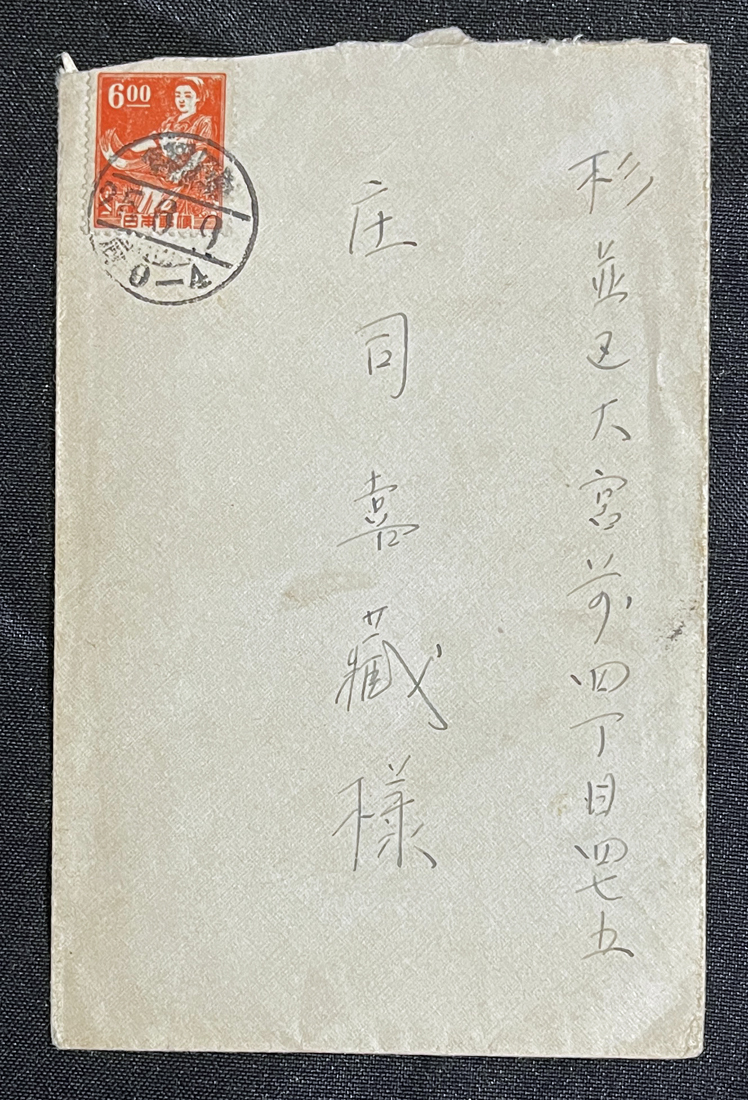 杉並区大宮前四丁目四七五
庄司喜藏様
6.00
日本郵便
0-4